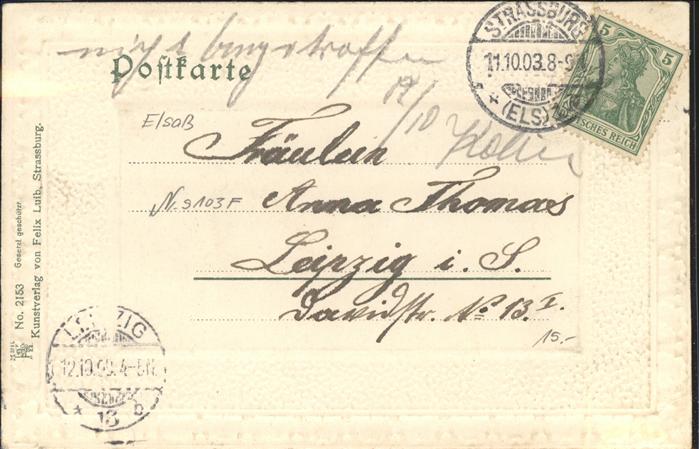 nicht angetroffen
Postkarte
12/10
STRASSBURG
11.10.03.8-9
(ELS)
5 5
DEUTSCHES REICH
Elsaß
Fräulein
N. 9103F
Anna Thomas
Leipzig i. S.
Davidstr. No 13.I.
15.-
No. 2153 Gesetzl geschützt
Kunstverlag von Felix Luib, Strassburg.
LEIPZIG
13 b